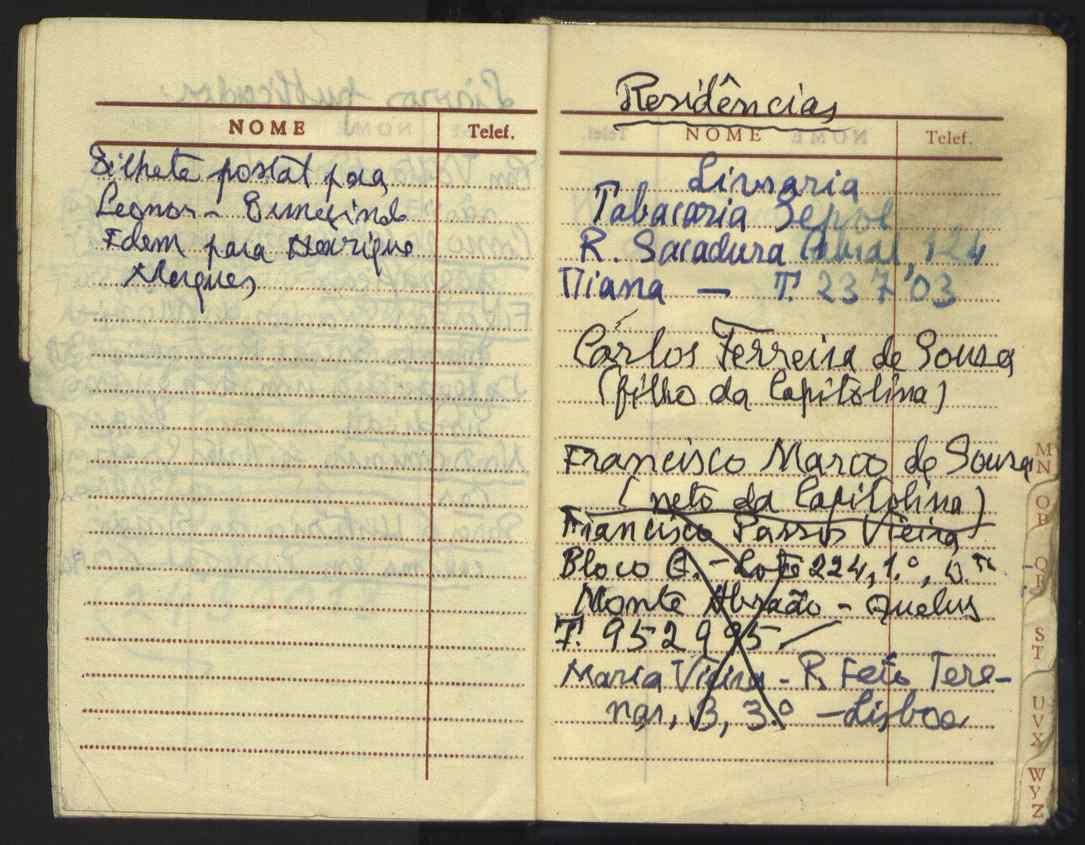 NOME Telef.
Bilhete postal para
Leonor - Gumezindo
Idem para Henrique
Marques
Residências
NOME Telef.
Livraria
Tabacaria Sepol
R. Sacadura Cabral, 124
Viana — T. 237'03
Carlos Ferreira de Sousa
(filho da Capitolina)
Francisco Marco de Sousa
(neto da Capitolina)
Francisco Passos Vieira
Bloco C. - Lote 224, 1.º, D.to
Monte Abraão - Queluz
T. 952995
Maria Vieira - R. Feio Tere-
nas, 3, 3.º - Lisboa
M
N
O
P
Q
R
S
T
U
V
X
W
Y
Z